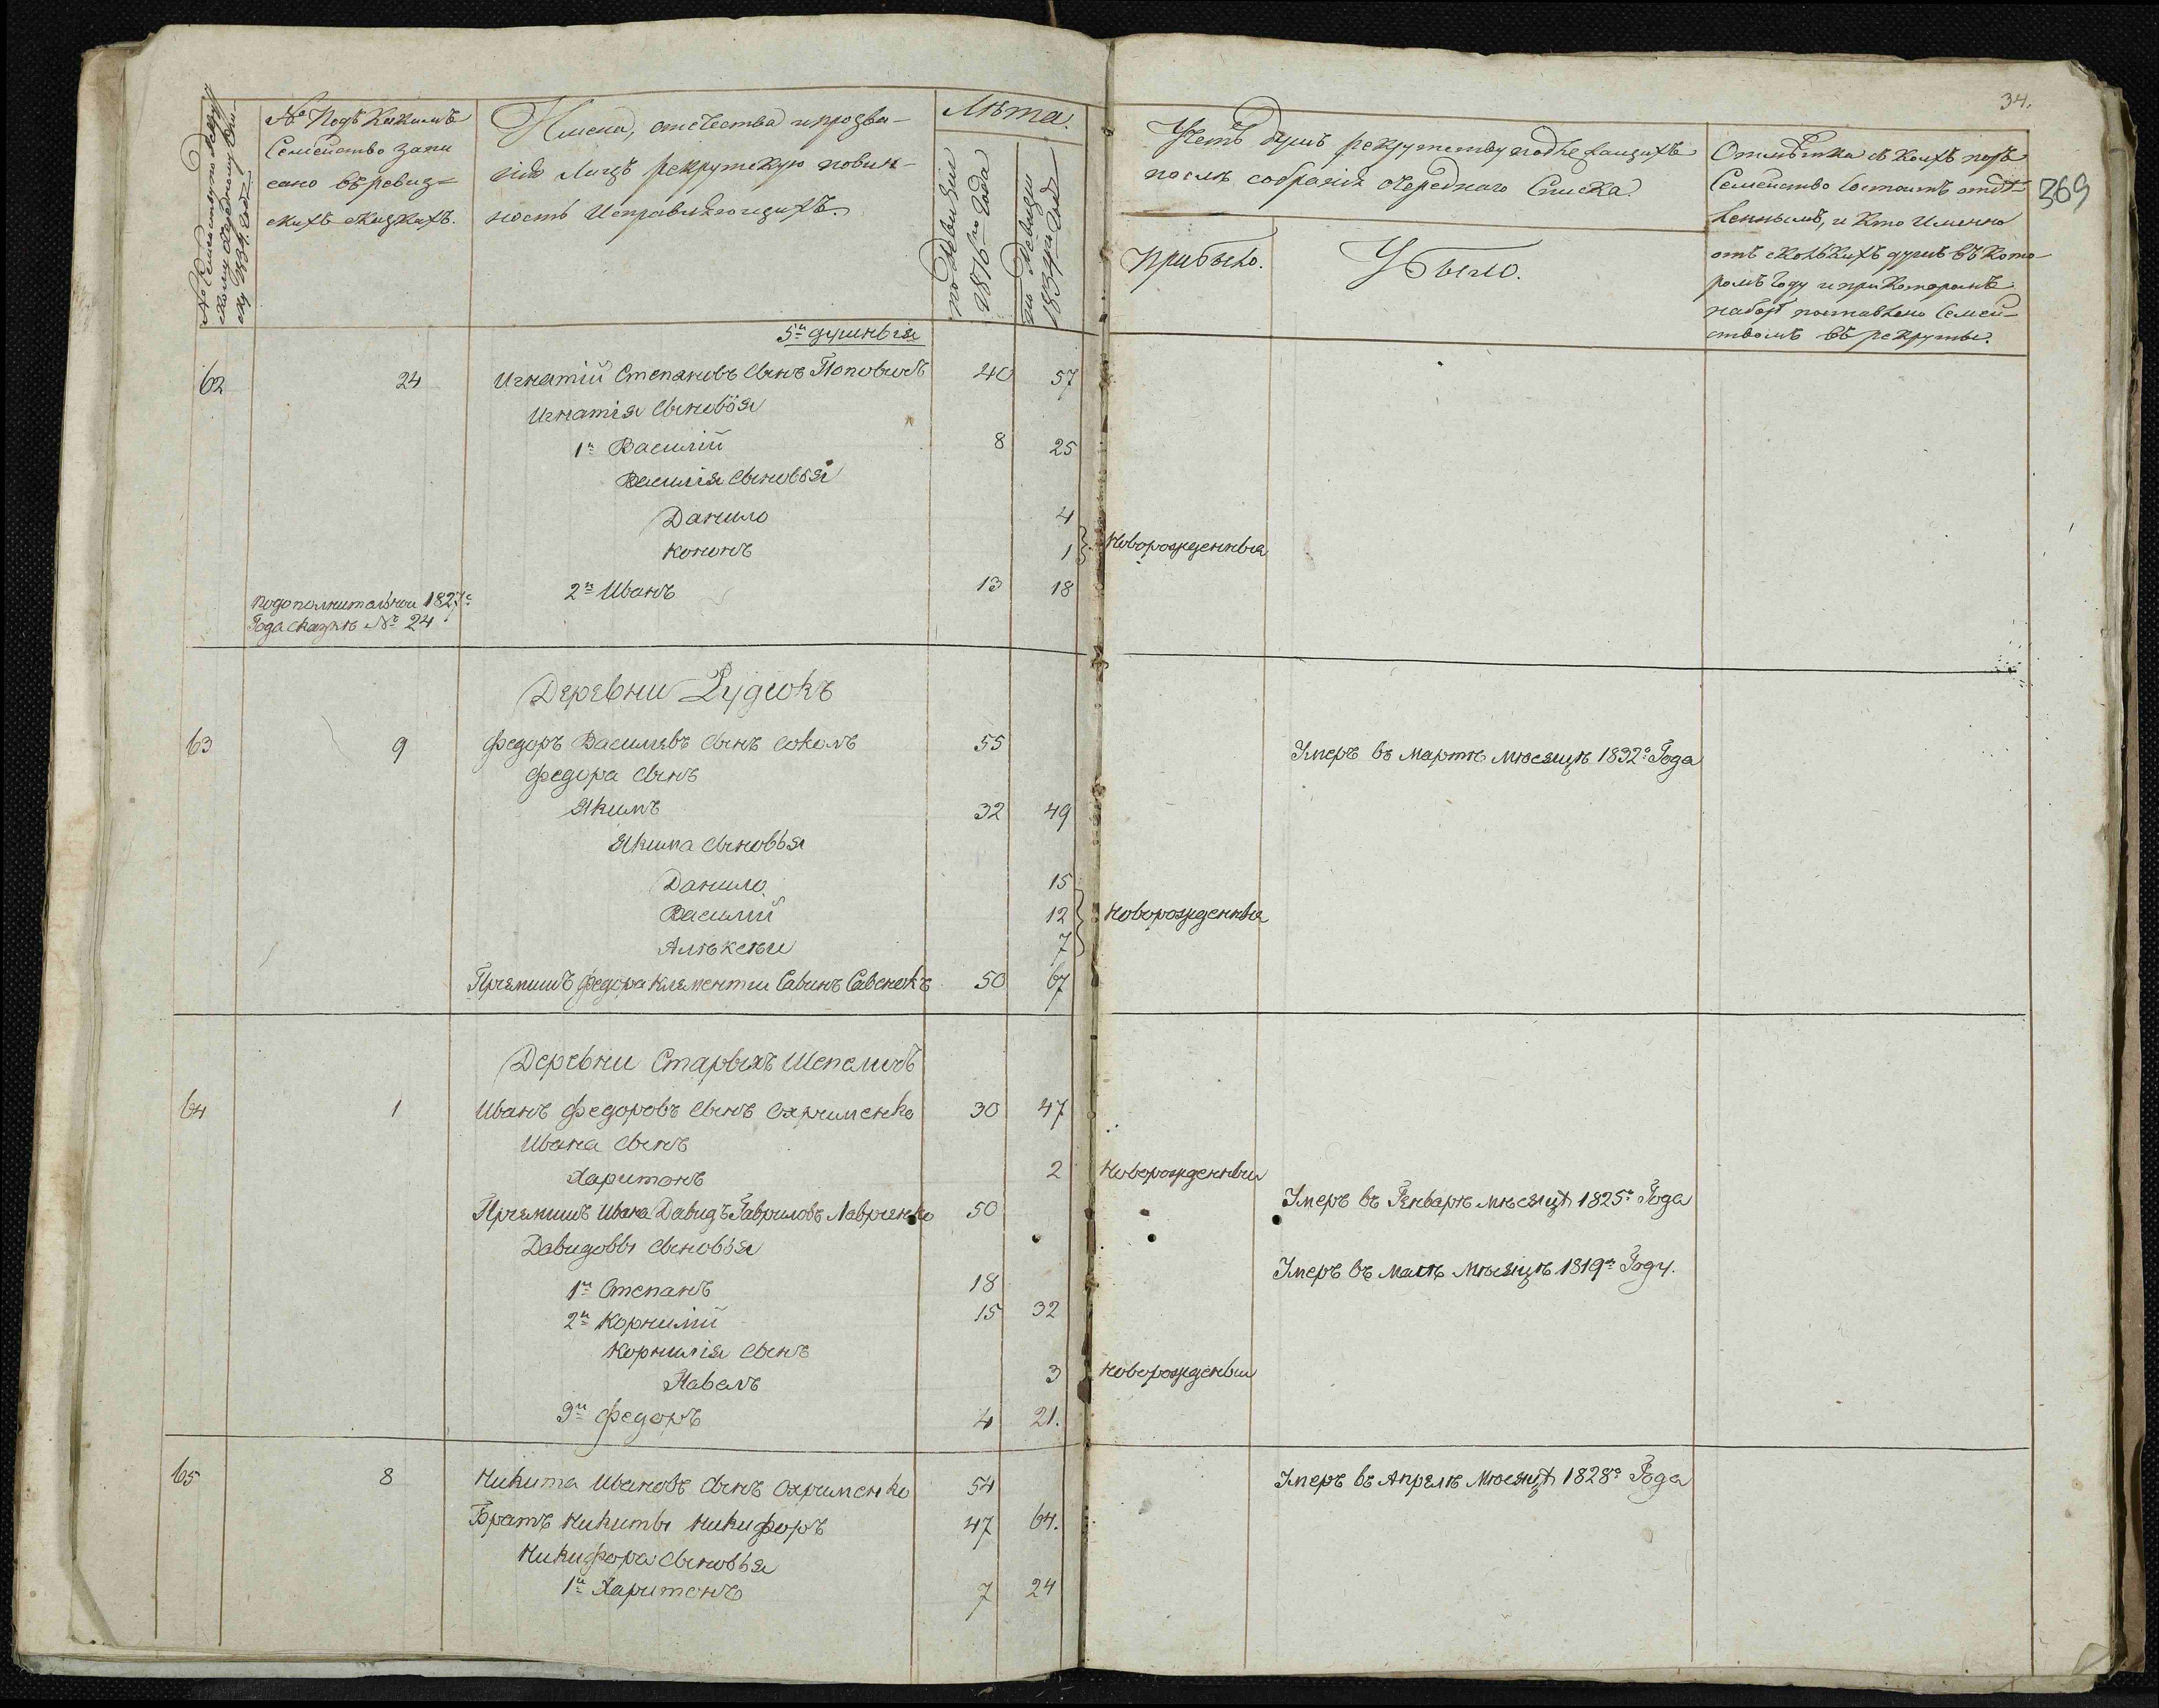 № Подъ Какимъ
Семейство запи
сано въ ревиз=
скихъ сказкахъ.
Имена, отечества и прозва-
нія Лицъ рекрутскую повин-
ность Исправляющихъ.
Лѣта.
по Ревизіи
1816го Года
по Ревизіи
1834го Года
34.
369
Учетъ душъ рекрутству подлежащихъ
послѣ собранія очереднаго Списка.
Прибыло.
Убыло.
Отмѣтка въ коихъ
Семейство Состоитъ
и Кто Именно
отъ сколькихъ душъ въ Кото
ромъ Году и при Которомъ
наборѣ поставлено Семей-
ствомъ въ рекруты.
5и душныя
62 24 Игнатій Степановъ Сынъ Поповичъ 40 57
Игнатія Сыновья
1й Василій 8 25
Василія Сыновья
Данило 4
Кононъ 1 Новорожденныя
2й Иванъ 13 18
по дополнительной 1827го
Года сказкѣ № 24
Деревни Рудьокъ
63 9 Федоръ Васильевъ Сынъ Соколъ 55 Умеръ въ Мартѣ Мѣсяцѣ 1832го Года
Федора Сынъ
Якимъ 32 49
Якима Сыновья
Данило 15
Василій 12 Новорожденныя
Алѣксеи 7
Пріемышъ Федора Клементіи Савинъ Савенокъ 50 67
Деревни Старыхъ Шепеличъ
64 1 Иванъ Федоровъ Сынъ Охрименко 30 47
Ивана Сынъ
Харитонъ 2 Новорожденныи
Пріемышъ Ивана Давидъ Гавриловъ Лавриенко 50 Умеръ въ Генварѣ мѣсяцѣ 1825го Года
Давидовы Сыновья
1й Степанъ 18 Умеръ въ Маіѣ Мѣсяцѣ 1819м Году.
2й Корнилій 15 32
Корнилія Сынъ
Павелъ 3 Новорожденыи
3й Федоръ 4 21.
65 8 Никита Ивановъ Сынъ Охрименко 54 Умеръ въ Апрелѣ Мѣсяцѣ 1828го Года
Братъ Никиты Никифоръ 47 64.
Никифора Сыновья
1й Харитонъ 7 24